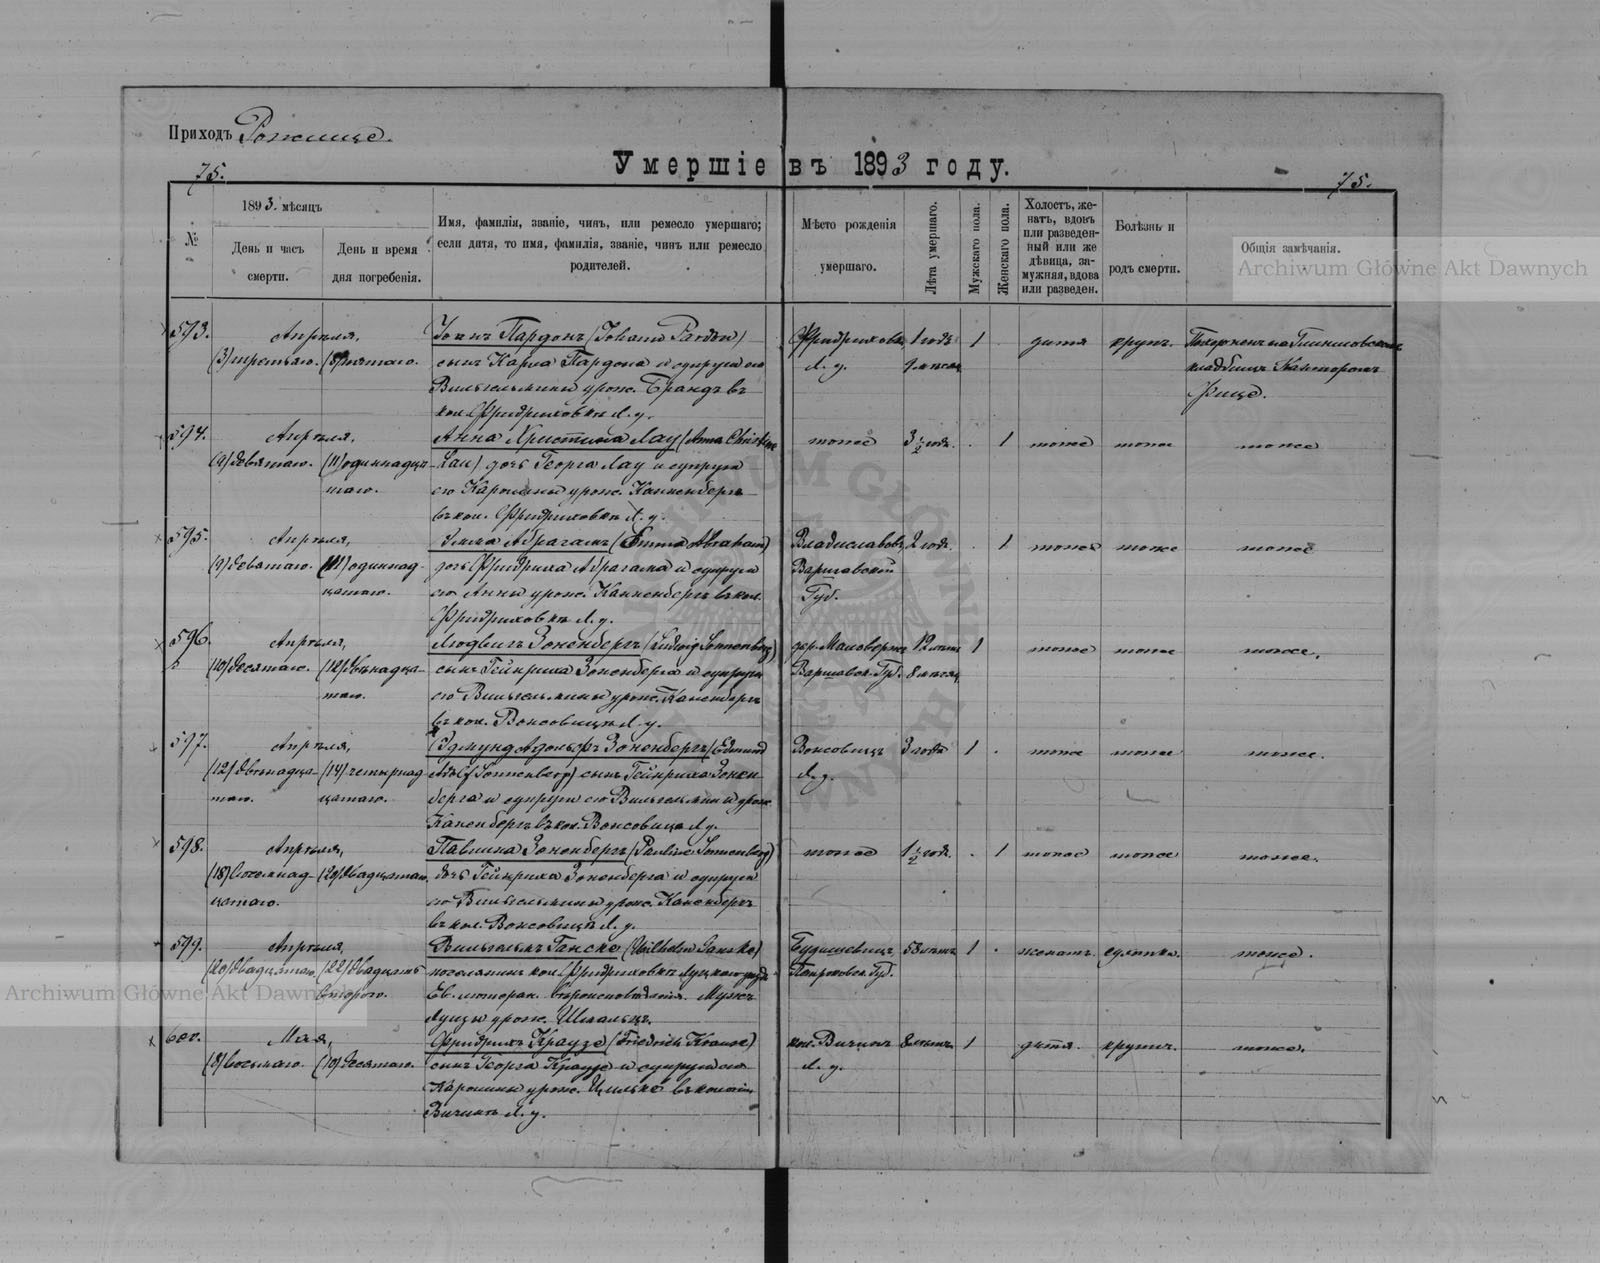 Приходъ Рожище.
Умершіе въ 1893 году.
75.
75.
№
1893. мѣсяцъ
День и часъ
смерти.
День и время
дня погребенія.
Имя, фамилія, званіе, чинъ, или ремесло умершаго;
если дитя, то имя, фамилія, званіе, чинъ или ремесло
родителей.
Мѣсто рожденія
умершаго.
Лѣта умершаго.
Мужскаго пола.
Женскаго пола.
Холостъ, же-
натъ, вдовъ
или разведен-
ный или же
дѣвица, за-
мужняя, вдова
или разведен.
Болѣзнь и
родъ смерти.
Общія замѣчанія.
Archiwum Główne Akt Dawnych
593.
Апрѣля,
(3) третьяго. (5) пятаго.
Іоганъ Пардонъ (Johann Pardon)
сынъ Карла Пардона и супруги его
Вильгельмины урожд. Брандъ въ
кол. Фридриховкѣ Л. у.
Л. у.
1 годъ
1
дитя
крупъ.
594.
Апрѣля,
(9) девятаго. (11) одиннадца-
таго.
Анна Христина Лау (Anna Christine
Lau) дочь Георга Лау и супруги
его Каролины урож. Канненбергъ
въ кол. Фридриховкѣ Л. у.
тоже
3 1/2 годъ.
1
тоже
тоже
тоже
595.
Апрѣля,
(9) девятаго. (11) одиннад-
цатаго.
Эмма Абрагамъ (Emma Abraham)
дочь Фридриха Абрагама и супруги
его Анны урож. Канненбергъ въ кол.
Фридриховкѣ Л. у.
Владиславовъ
Варшавской
Губ.
2 годъ.
1
тоже
тоже
тоже
596.
Апрѣля,
(10) десятаго. (12) двѣнадца-
таго.
Людвигъ Зоненбергъ (Ludwig Sonnenberg)
сынъ Гейнриха Зоненберга и супруги
его Вильгельмины урож. Каненбергъ
въ кол. Л. у.
Варшавск. Губ.
12 лѣтъ
8 мѣсяц.
1
тоже
тоже
тоже.
597.
Апрѣля,
(12) двѣнадца-
таго.
(14) четырнад-
цатаго.
Эдмундъ Адольфъ Зоненбергъ (Edmund
Adolf Sonnenberg) сынъ Гейнриха Зонен-
берга и супруги его Вильгельмины урож.
Каненбергъ въ кол. Л. у.
Л. у.
3 года
1
тоже
тоже
тоже.
598.
Апрѣля,
(18) восемнад-
цатаго.
(20) двадцатаго.
Павлина Зоненбергъ (Pauline Sonnenberg)
дочь Гейнриха Зоненберга и супруги
его Вильгельмины урож. Каненбергъ
въ кол. Л. у.
тоже
1 1/2 годъ.
1
тоже
тоже
тоже.
599.
Апрѣля,
(20) двадцатаго. (22) двадцать
втораго.
Вильгельмъ Ганске (Wilhelm Ganske)
поселянинъ кол. Фридриховкѣ Луцкаго уѣзда
Ев. лютеран. вѣроисповѣданія. Мужъ
урож.
Губ.
53 лѣтъ
1
женатъ.
тоже.
600.
Мая,
(8) восьмаго. (10) десятаго.
Фридрихъ Краузе (Friedrich Krause)
сынъ Георга Краузе и супруги его
Каролины урож. въ колоніи
Л. у.
кол.
Л. у.
1
дитя.
крупъ.
тоже.
Archiwum Główne Akt Dawnych